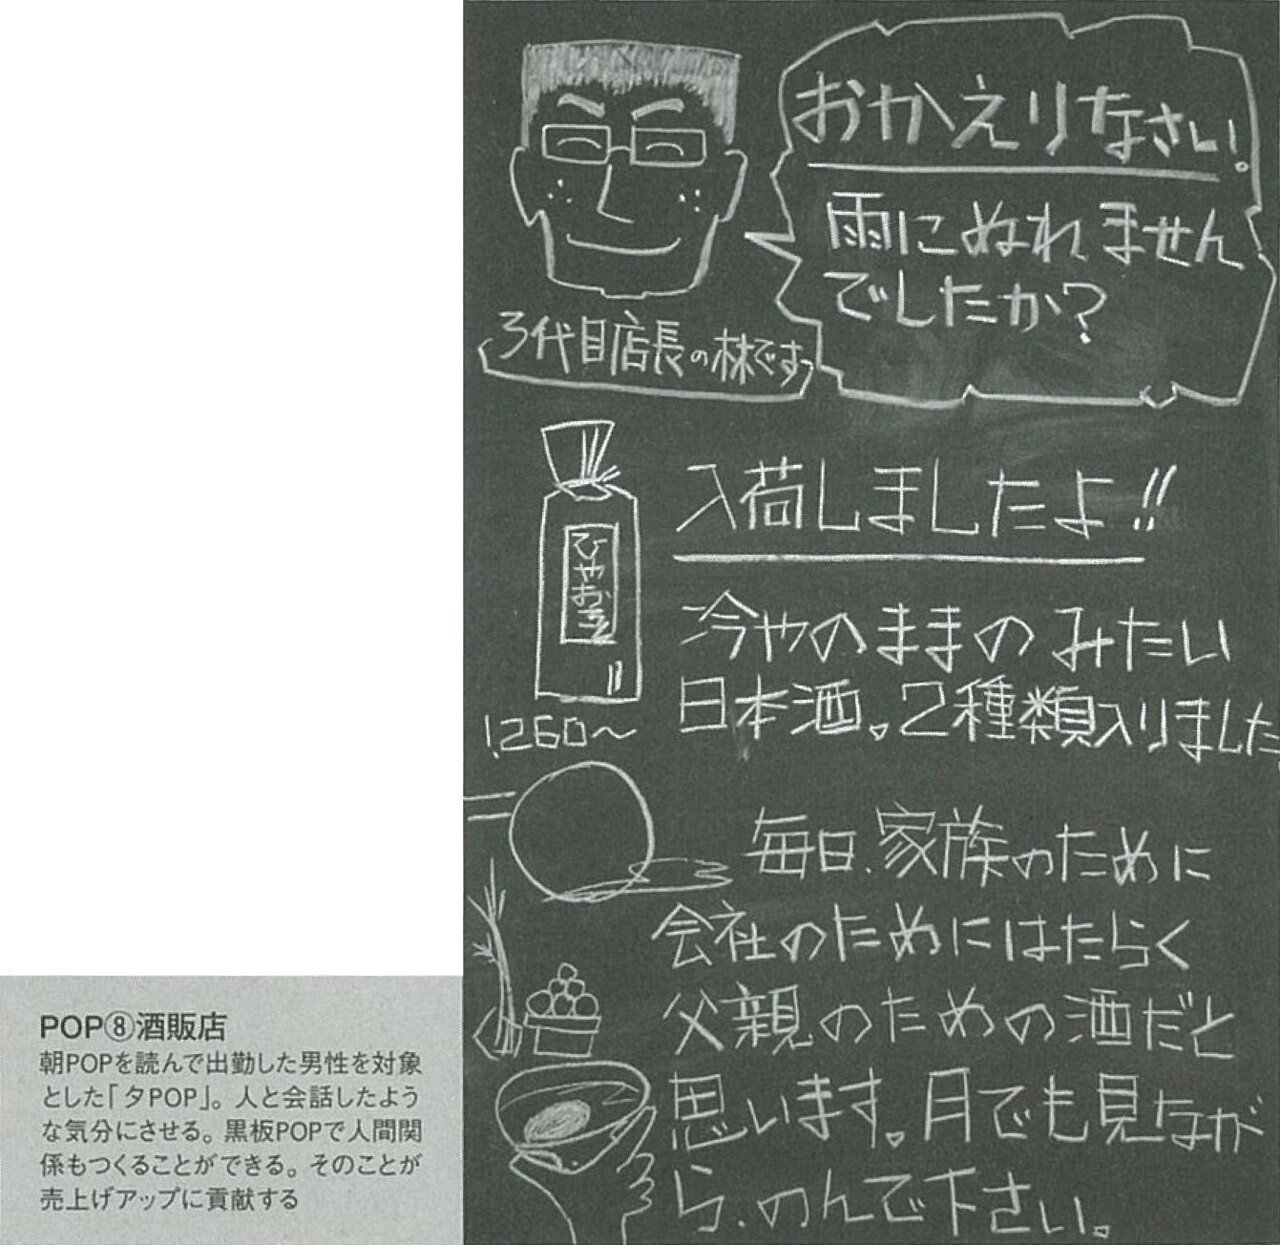 おかえりなさい。
雨にぬれません
でしたか?
3代目店長の林です
入荷しましたよ!!
ひやおろし
冷やのままのみたい
日本酒。2種類入りました
1,260〜
毎日、家族のために
会社のためにはたらく
父親のための酒だと
思います。月でも見なが
ら、のんで下さい。
POP⑧酒販店
朝POPを読んで出勤した男性を対象
とした「夕POP」。人と会話したよう
な気分にさせる。黒板POPで人間関
係もつくることができる。そのことが
売上げアップに貢献する